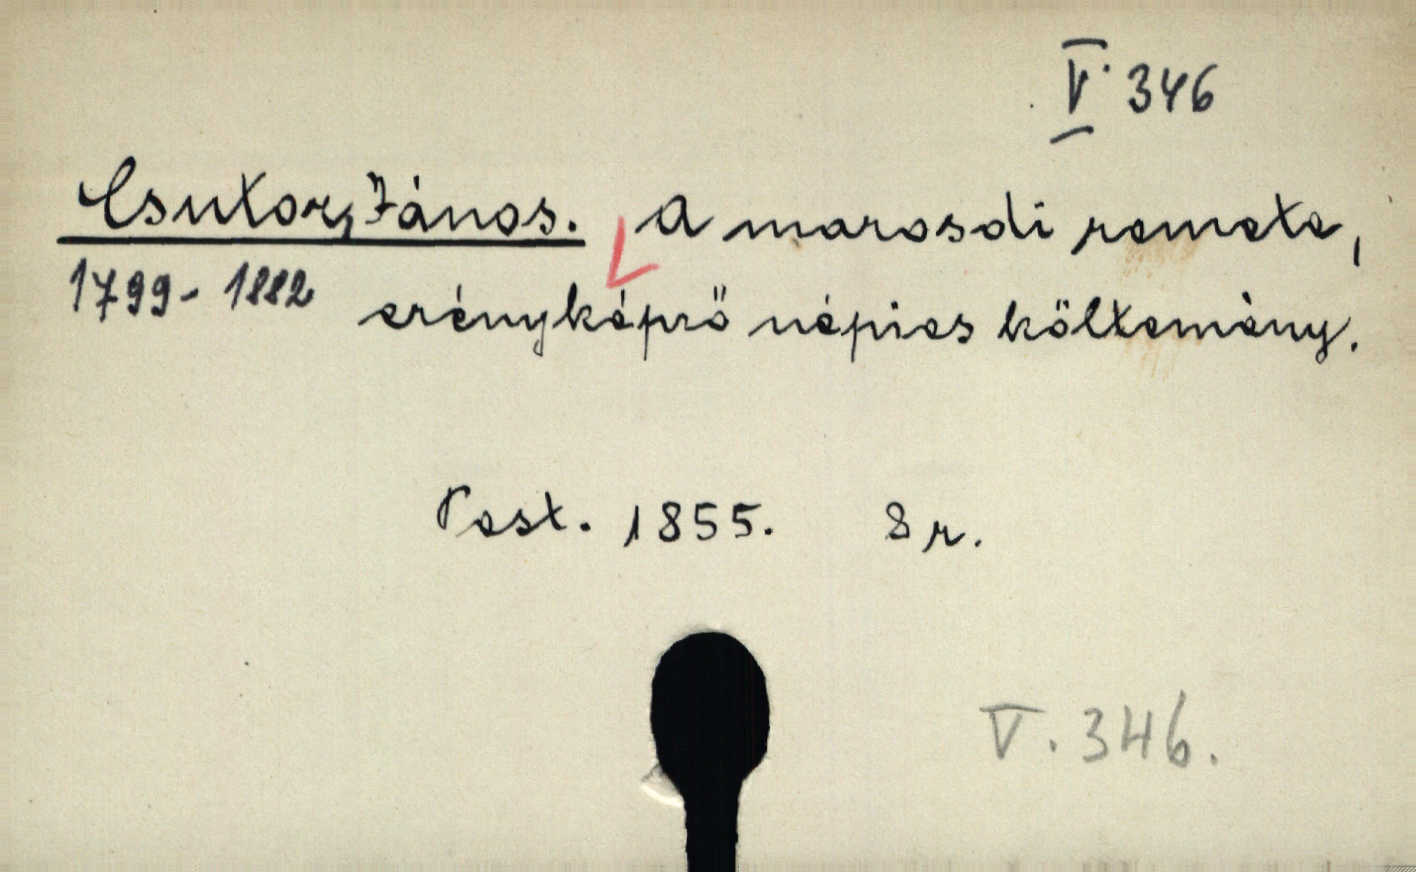 V. 346
Csutor, János. A marosdi remete,
1799-1882 erényképző népies költemény.
Pest. 1855. 8 r.
V. 346.